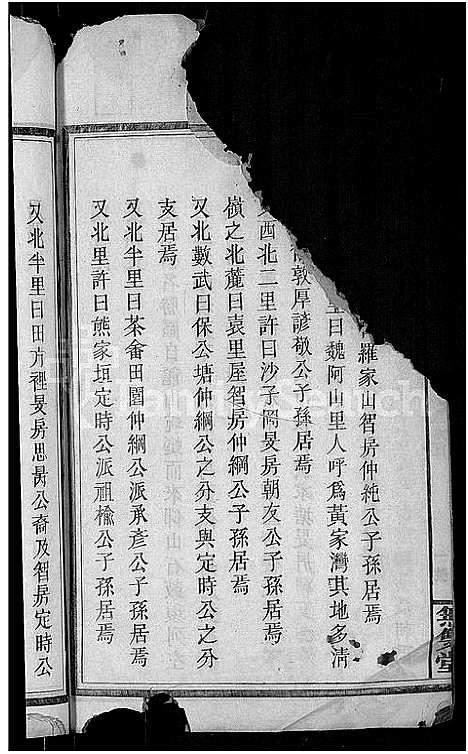 羅家山智房仲純公子孫居焉
里曰魏阿山里人呼爲黃家灣其地多淸
敦厚諺敬公子孫居焉
又西北二里許曰沙子岡旻房朝友公子孫居焉
嶺之北麓曰袁里屋智房仲綱公子孫居焉
又北數武曰保公塘仲綱公之分支與定時公之分
支居焉
又北半里曰茶畬田園仲綱公派承彥公子孫居焉
又北里許曰熊家垣定時公派祖楡公子孫居焉
又北半里曰田方裡旻房思昺公裔及智房定時公